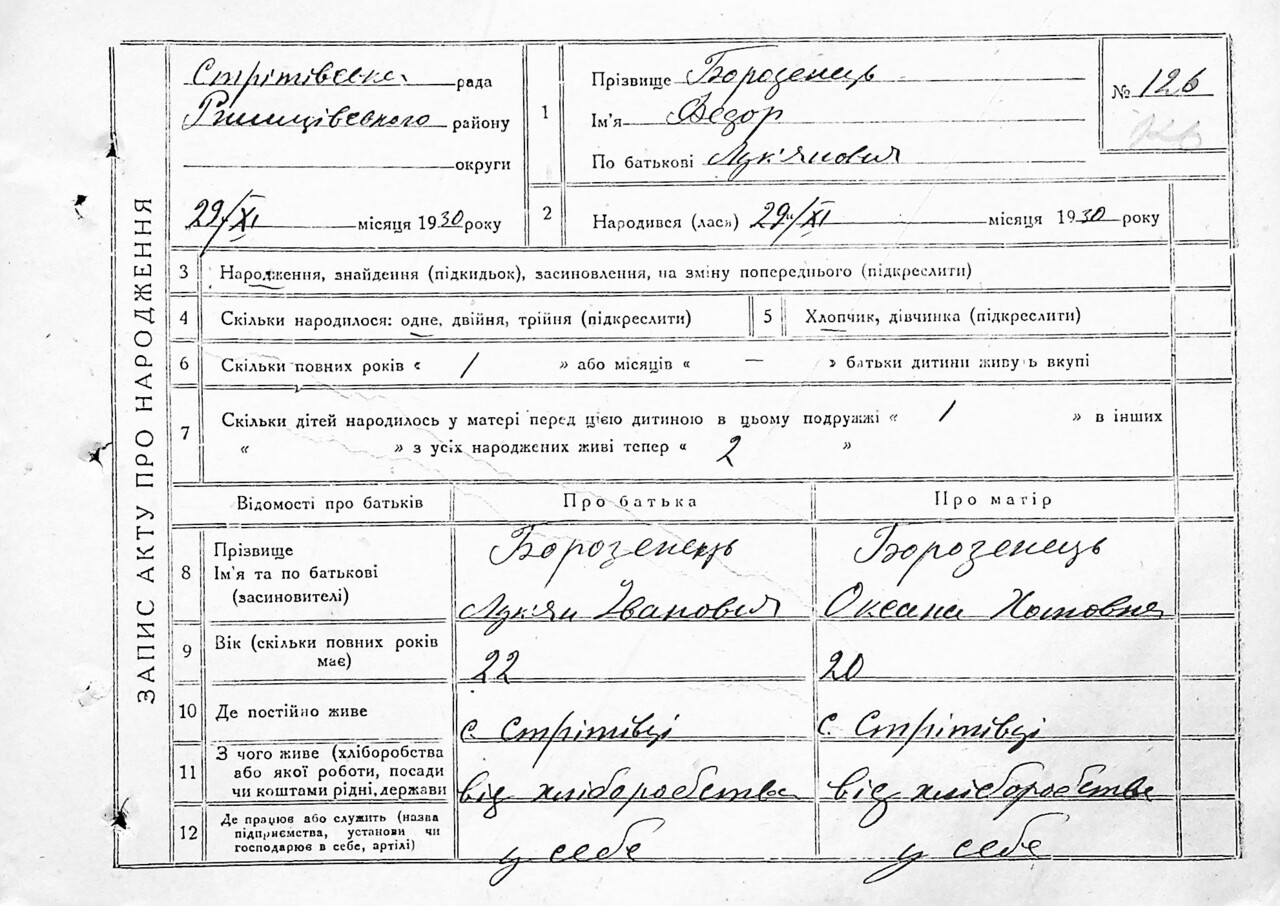 ЗАПИС АКТУ ПРО НАРОДЖЕННЯ
Стрітівська рада
району
округи
29/XI місяця 1930 року
1 Прізвище Борозенець
Ім'я Федор
По батькові Лук'янович
№ 126
2 Народився (лася) 29/XI місяця 1930 року
3 Народження, знайдення (підкидьок), засиновлення, на зміну попереднього (підкреслити)
4 Скільки народилося: одне, двійня, трійня (підкреслити) 5 Хлопчик, дівчинка (підкреслити)
6 Скільки повних років « 1 » або місяців « — » батьки дитини живуть вкупі
7 Скільки дітей народилось у матері перед цією дитиною в цьому подружжі « 1 » в інших
« » з усіх народжених живі тепер « 2 »
Відомості про батьків Про батька Про матір
8 Прізвище Борозенець Борозенець
Ім'я та по батькові
(засиновителі) Лукян Іванович Оксана
9 Вік (скільки повних років
має) 22 20
10 Де постійно живе с. Стрітівці с. Стрітівці
11 З чого живе (хліборобства
або якої роботи, посади
чи коштами рідні, держави від хліборобства від хліборобства
12 Де працює або служить (назва
підприємства, установи чи
господарює в себе, артілі) у себе у себе